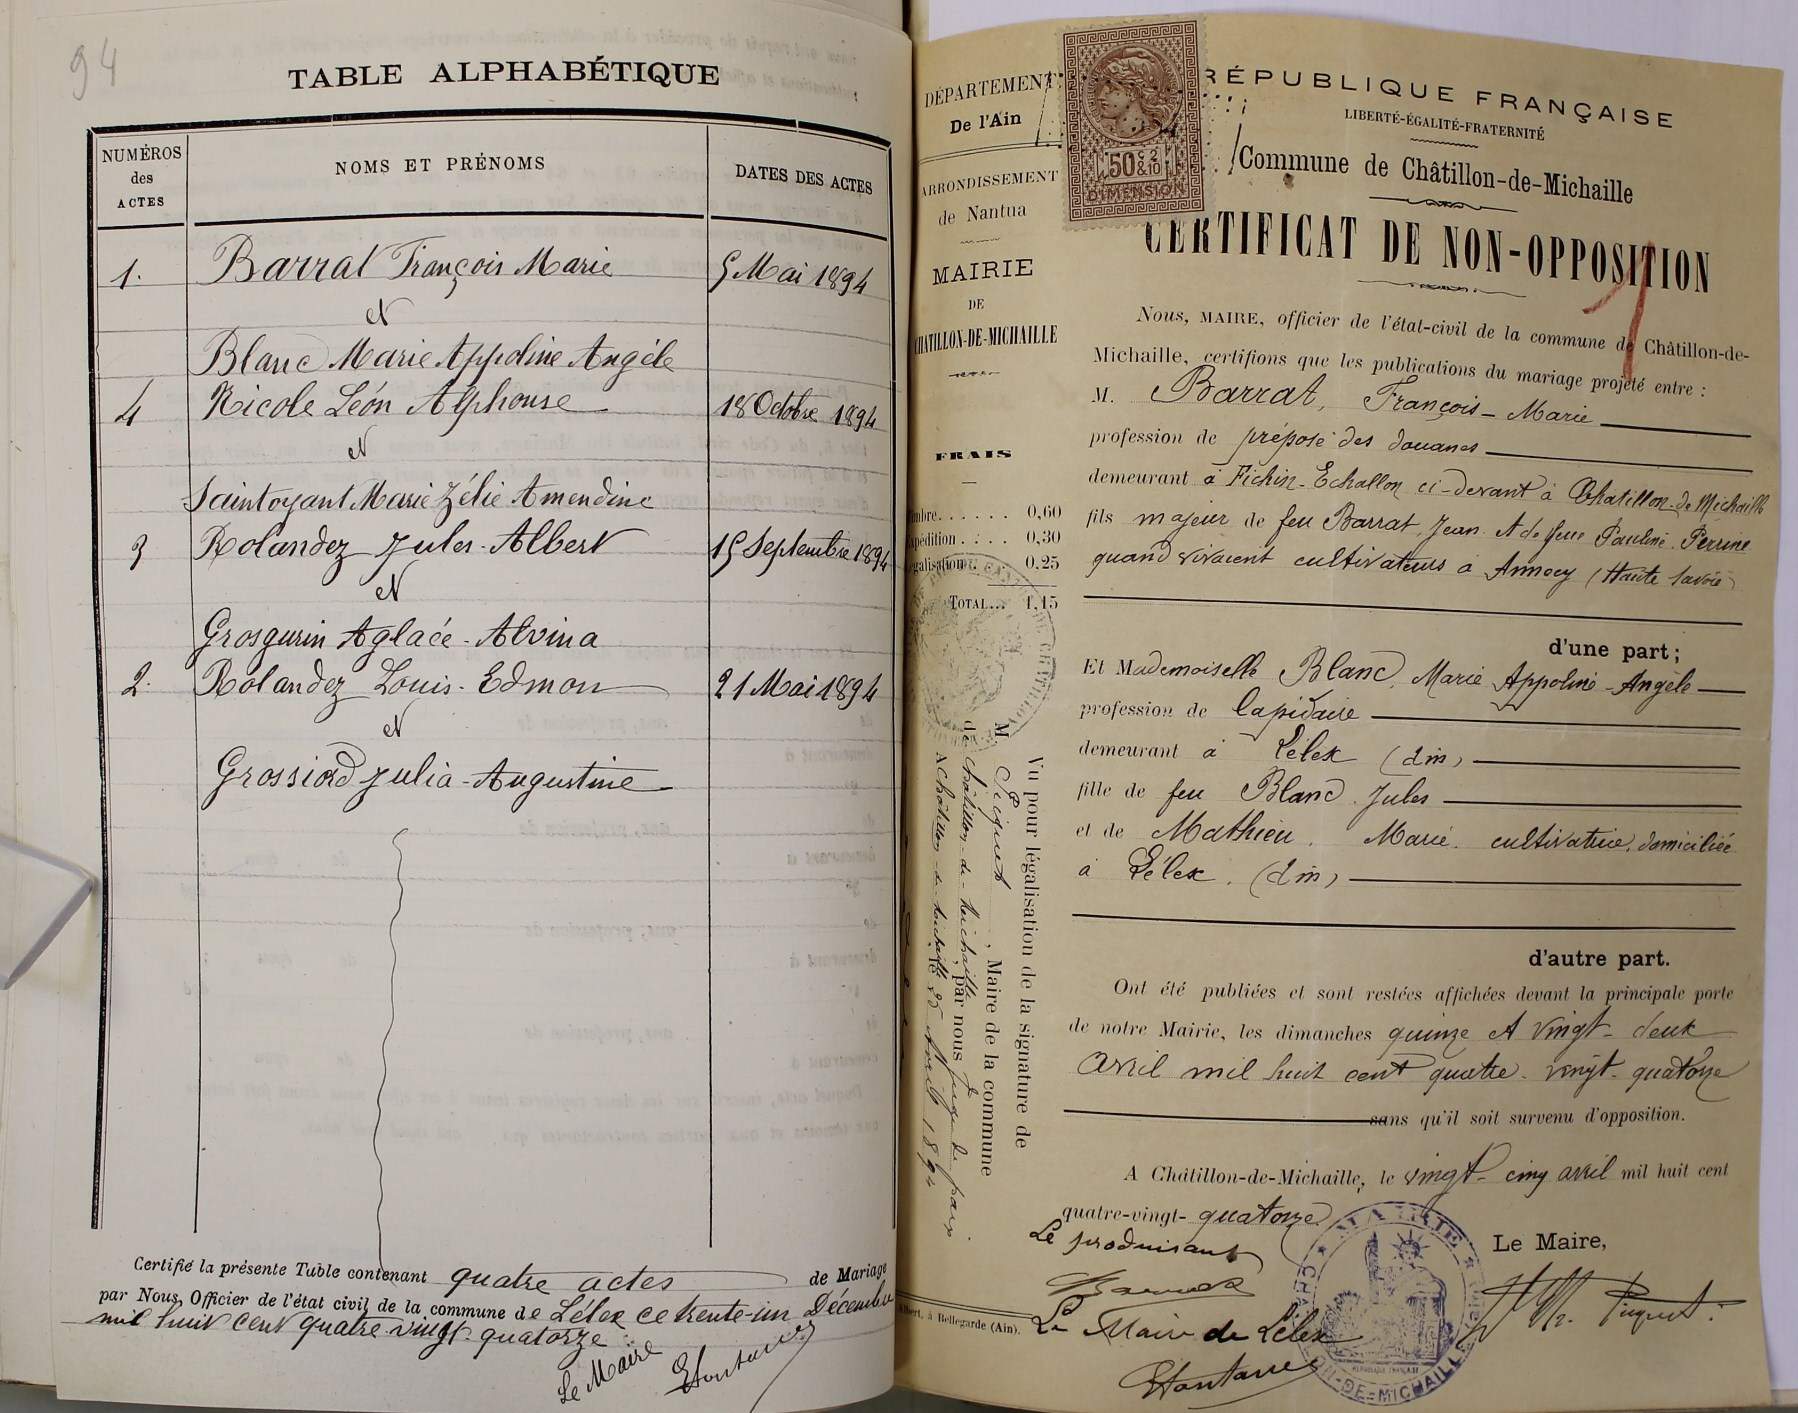 94
TABLE ALPHABÉTIQUE
NUMÉROS
des
ACTES
NOMS ET PRÉNOMS
DATES DES ACTES
1. Barrat François Marie 5 Mai 1894
et
Blanc Marie Appoline Angèle
4 Nicole Léon Alphonse 18 Octobre 1894
et
Saintoyant Marie Zélie Amendine
3 Rolandez Jules-Albert 15 Septembre 1894
et
Grosgurin Aglaée-Alvina
2. Rolandez Louis-Edmon 21 Mai 1894
et
Grossiord Julia-Augustine
Certifié la présente Table contenant quatre actes de Mariage
par Nous, Officier de l'état civil de la commune de Lélex ce trente-un Décembre
mil huit cent quatre-vingt-quatorze
Le Maire
DÉPARTEMENT
De l'Ain
ARRONDISSEMENT
de Nantua
MAIRIE
DE
CHATILLON-DE-MICHAILLE
FRAIS
Timbre...... 0,60
Expédition.... 0,30
Légalisation... 0,25
TOTAL... 1,15
Vu pour légalisation de la signature de
M. Piquet, Maire de la commune
de Châtillon-de-Michaille, par nous Juge de paix
A Châtillon-de-Michaille, le 25 Avril 1894
Albert, à Bellegarde (Ain).
50 c 2
& 10
DIMENSION
RÉPUBLIQUE FRANÇAISE
LIBERTÉ-ÉGALITÉ-FRATERNITÉ
Commune de Châtillon-de-Michaille
CERTIFICAT DE NON-OPPOSITION
1
Nous, MAIRE, officier de l'état-civil de la commune de Châtillon-de-
Michaille, certifions que les publications du mariage projeté entre :
M. Barrat, François-Marie
profession de préposé des douanes
demeurant à Fichin-Echallon ci-devant à Chatillon-de Michaille
fils majeur de feu Barrat, Jean et de feue Pauline Perrine
quand vivaient cultivateurs à Annecy (Haute Savoie)
d'une part;
Et Mademoiselle Blanc, Marie Appoline-Angèle
profession de lapidaire
demeurant à Lélex (Ain)
fille de feu Blanc Jules
et de Mathieu, Marie cultivatrice, domiciliée
à Lélex, (Ain)
d'autre part.
Ont été publiées et sont restées affichées devant la principale porte
de notre Mairie, les dimanches quinze et vingt-deux
avril mil huit cent quatre-vingt-quatorze
sans qu'il soit survenu d'opposition.
A Châtillon-de-Michaille, le vingt-cinq avril mil huit cent
quatre-vingt-quatorze
Le produisant
Barrat
Le Maire,
Piquet
Le Maire de Lélex
MAIRIE
CHATILLON-DE-MICHAILLE